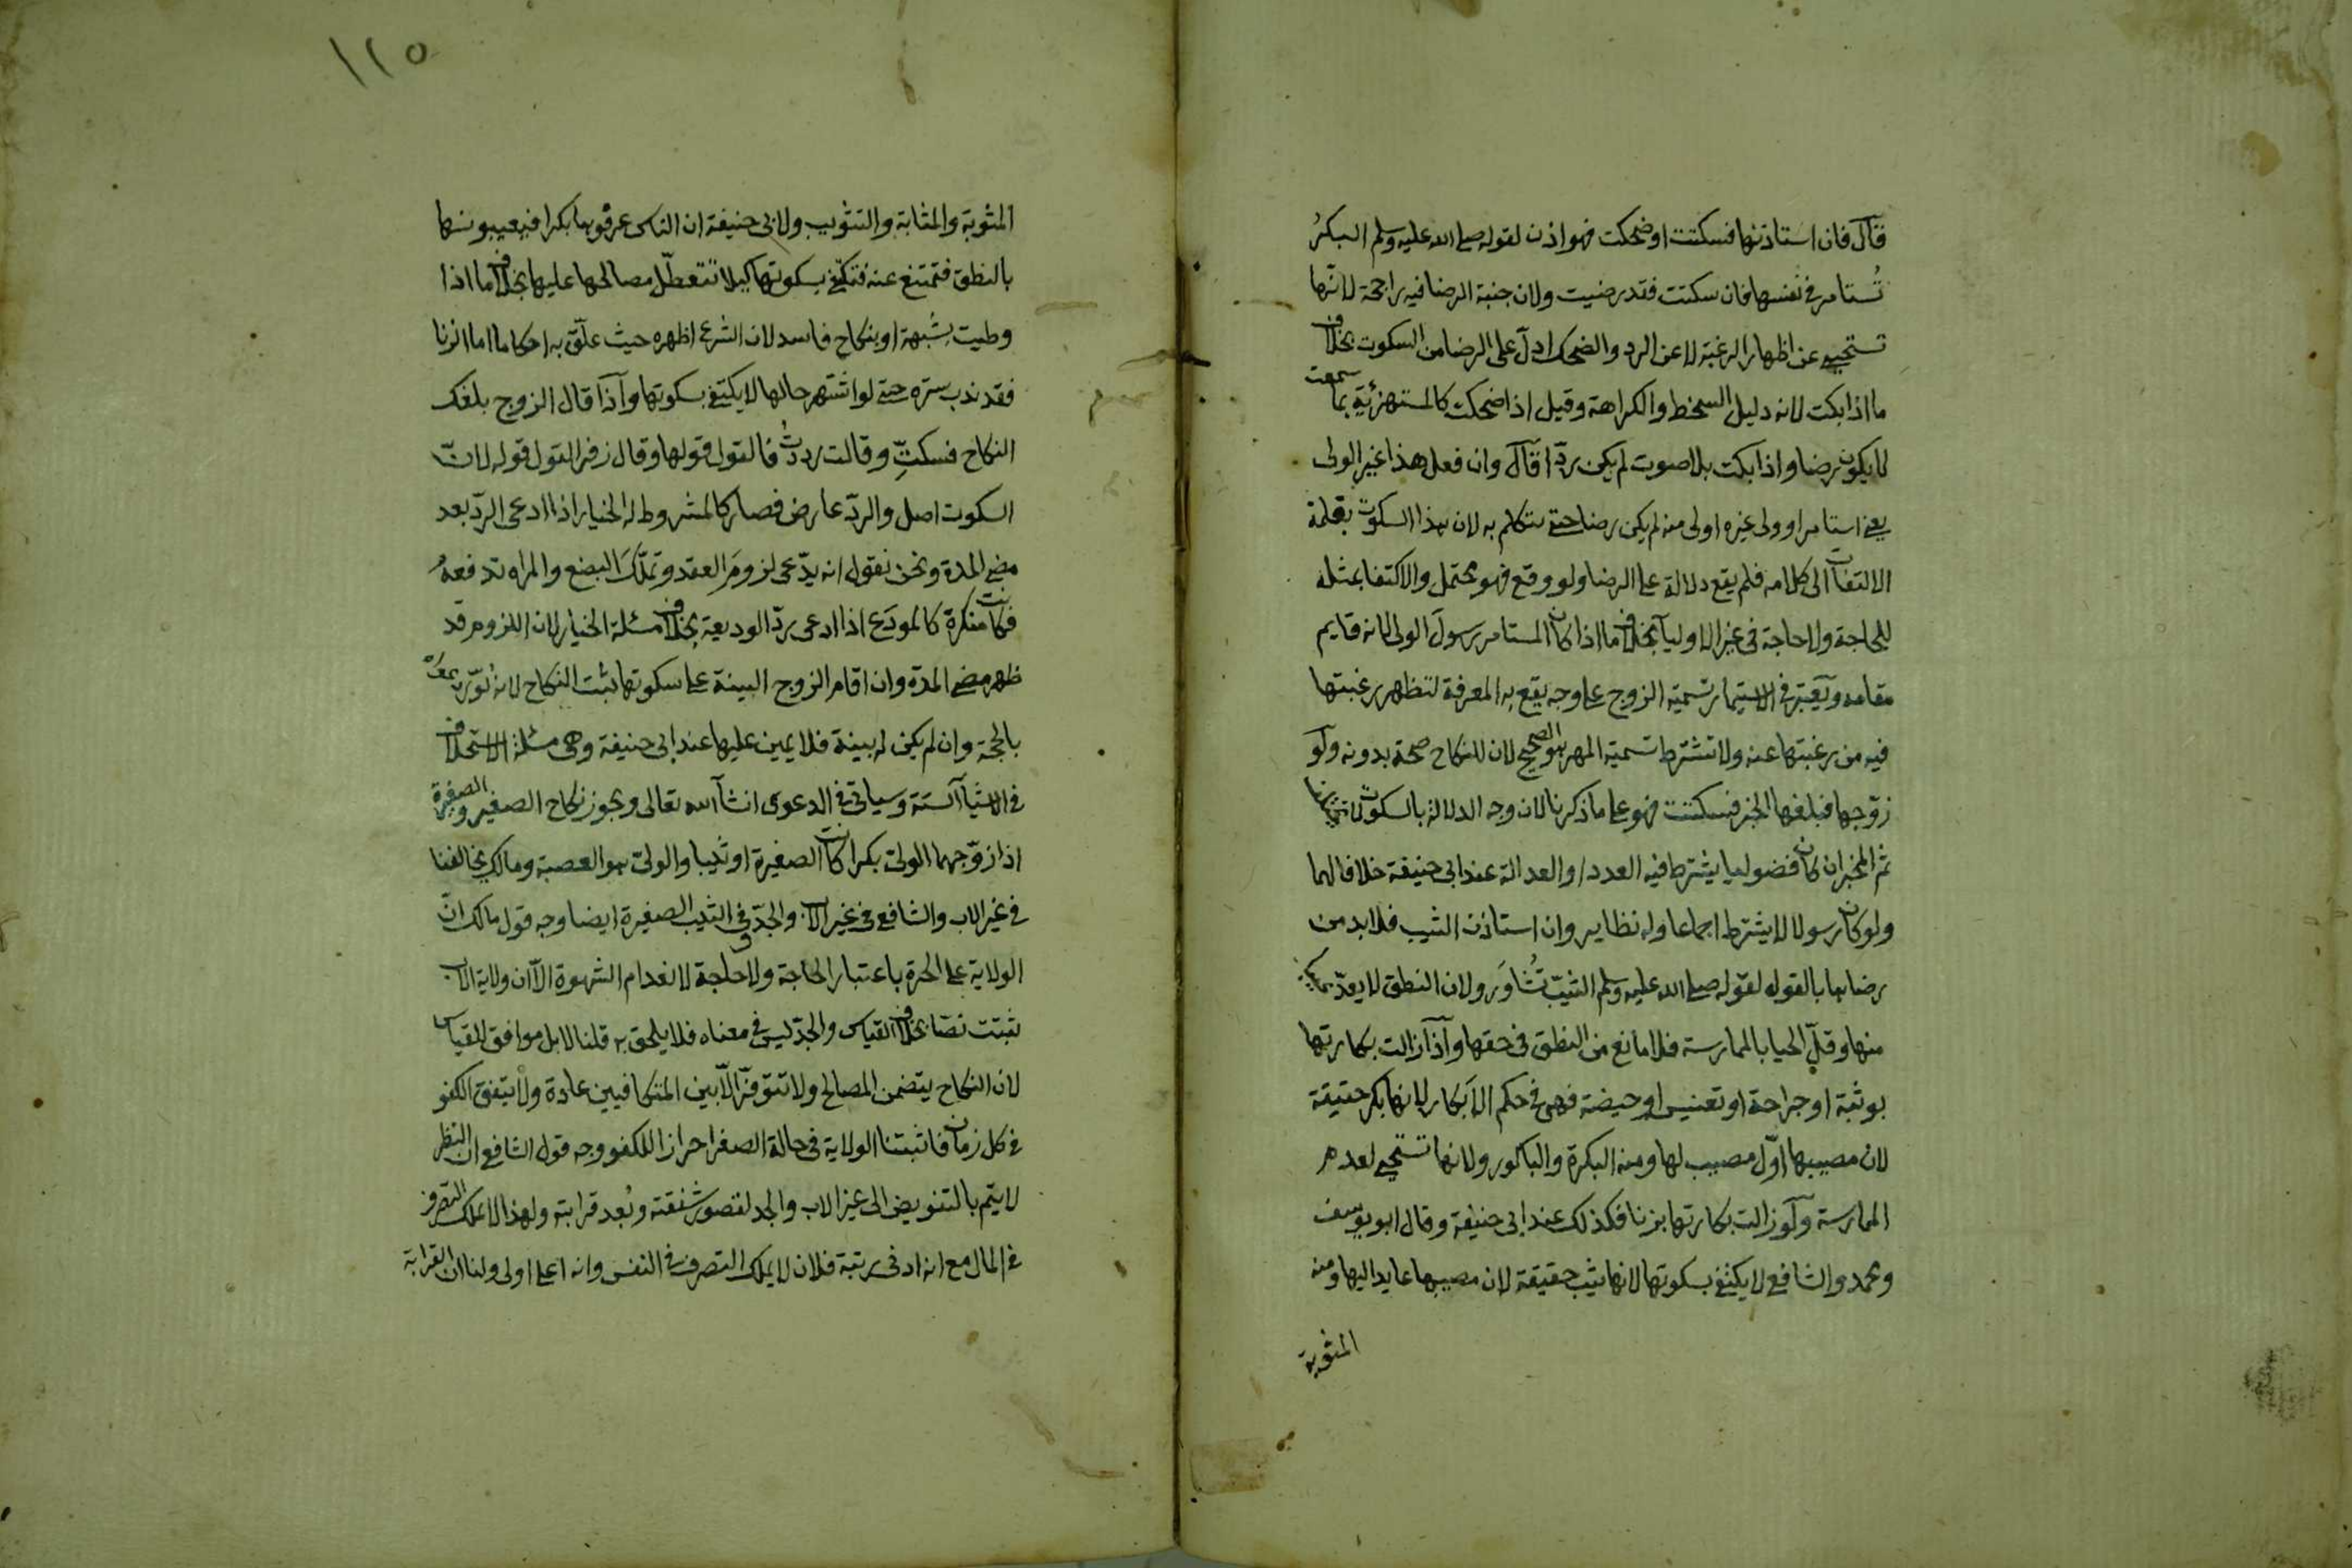 قال فان استاذنها فسكتت اوضحكت فهو اذن لقوله صلى الله عليه وسلم البكرُ
تُستامر فى نفسها فان سكتت فقد رضيت ولان جنبة الرضا فيه راجحة لانها
تستحيى عن اظهار الرغبة لا عن الرد والضحك ادلّ على الرضا من السكوت بخلاف
ما اذا بكت لانه دليل السخط والكراهة وقيل اذا ضحكت كالمستهزئة بما سمعت
لا يكون رضا واذا بكت بلا صوت لم يكن ردّا قال وان فعل هذا غير الولى
يعنى استامر او ولى غيره اولى منه لم يكن رضا حتى تتكلم به لان هذا السكوت بقلة
الالتفات الى كلامه فلم يقع دلالة على الرضا ولو وقع فهو محتمل والاكتفا بمثله
للحاجة ولا حاجة فى غير الاوليآ بخلاف ما اذا كان المستامر رسول الولى لانه قايم
مقامه ويعتبر فى الاستيمار تسمية الزوج على وجه يقع به المعرفة لتظهر رغبتها
فيه من رغبتها عنه ولا تشترط تسمية المهر هو الصحيح لان للنكاح صحة بدونه ولو
زوّجها فبلغها الخبر فسكتت فهو على ما ذكرنا لان وجه الدلالة بالسكوت لا
ثم المخبر ان كان فضوليا يشترط فيه العدد او العدالة عند ابى حنيفة خلافا لهما
ولو كان رسولا لا يشترط اجماعا وله نظاير وان استاذن الثيب فلا بد من
رضاها بالقول لقوله صلى الله عليه وسلم الثيّب تُشاوَر ولان النطق لا يعدّ
منها وقلّ الحيا بالممارسة فلا مانع من النطق فى حقها وآذا زالت بكارتها
بوثبة او جراحة او تعنيس او حيضة فهى فى حكم الابكار لانها بكر حقيقة
لان مصيبها اوّل مصيب لها ومنه البكرة والباكور ولانها تستحيى لعدم
الممارسة ولو زالت بكارتها بزنا فكذلك عند ابى حنيفة وقال ابو يوسف
ومحمد والشافعى لا يكتفى بسكوتها لانها ثيب حقيقة لان مصيبها عايد اليها ومنه
المثوبة
١٢٥
المثوبة والمثابة والتثويب ولابى حنيفة ان الناس عرفوها بكرا فيعيبونها
بالنطق فتمتنع عنه فتكتفى بسكوتها كيلا تتعطّل مصالحها عليها بخلاف ما اذا
وطيت بشبهة او بنكاح فاسد لان الشرع اظهره حيث علّق به احكاما اما الزنا
فقد ندب ستره حتى لو اشتهر حالها لا يكتفى بسكوتها وآذا قال الزوج بلغك
النكاح فسكتِّ وقالت رددتُ فالقول قولها وقال زفر القول قوله لانّ
السكوت اصل والردّ عارض فصار كالمشروط له الخيار اذا ادعى الردّ بعد
مضى المدة ونحن نقول انه يدّعى لزومَ العقد وتملّكَ البضع والمراه تدفعهُ
فكانت منكرة كالمودَع اذا ادعى ردّ الوديعة بخلاف مسئلة الخيار لان اللزوم قد
ظهر مضى المدة وان اقام الزوج البينة على سكوتها يثبت النكاح لانه نوّر دعواه
بالحجة وان لم يكن له بينة فلا يمين عليها عند ابى حنيفة وهى مسئلة الاستحلاف
فى الاشيآ الستة وسياتى فى الدعوى انشآ الله تعالى ويجوز نكاح الصغير والصغيرة
اذا زوّجهما الولىّ بكرا كانت الصغيرة او ثيبا والولىّ هو العصبة ومالك يخالفنا
فى غير الاب والشافعى فى غير الاب والجدّ وفى الثيب الصغيرة ايضا وجه قول مالك انّ
الولاية على الحرة باعتبار الحاجة ولا حاجة لانعدام الشهوة الاّ ان ولاية الاب
ثبتت نصّا بخلاف القياس والجدّ ليس فى معناه فلا يلحق به قلنا لا بل موافق للقياس
لان النكاح يتضمن المصالح ولا تتوفّر الاّ بين المتكافيين عادة ولا يتفق الكفو
فى كل زمان فاثبتنا الولاية فى حالة الصغر احرازا للكفو وجه قول الشافعى ان النظر
لا يتم بالتفويض الى غير الاب والجد لقصور شفقته وبُعد قرابته ولهذا لا يملك التصرف
فى المال مع انه ادنى رتبة فلان لا يملك التصرف فى النفس وانه اعلى اولى ولنا ان القرابة